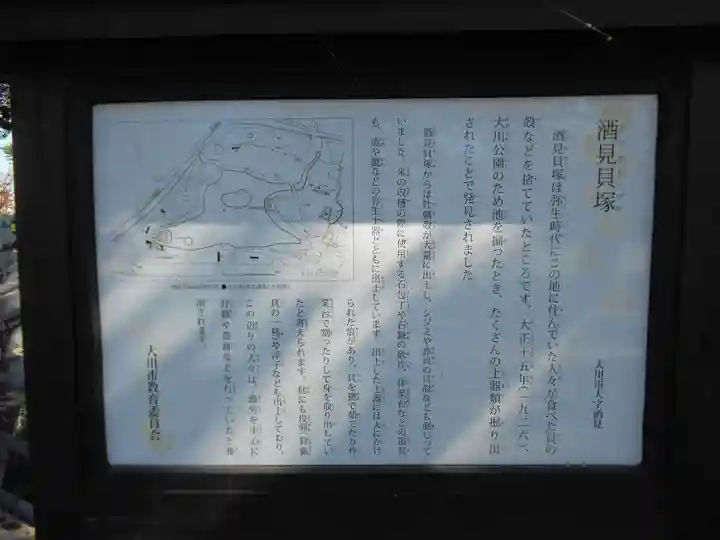 酒見貝塚
大川市大字酒見
酒見貝塚は弥生時代にこの地に住んでいた人々が食べた貝の
殻などを捨てていたところです。大正十五年(一九二六)、
大川公園のため池を掘ったとき、たくさんの土器類が掘り出
されたことで発見されました
酒見貝塚からは牡蠣殻が大量に出土し、シジミや赤貝の貝殻なども混じって
いました。米の収穫の際に使用する石包丁や石鏃の破片、作業台などの道具
も、壺や甕などの弥生土器とともに出土しています。出土した土器には火にかけ
られた跡があり、貝を甕で茹でたり作
業台で割ったりして身を取り出してい
たと考えられます。他にも
貝の一種)や浮子なども出土しており、
この辺りの人々は、漁労を中心に
狩猟や農耕などを行っていたと推
測されます。
大川市教育委員会